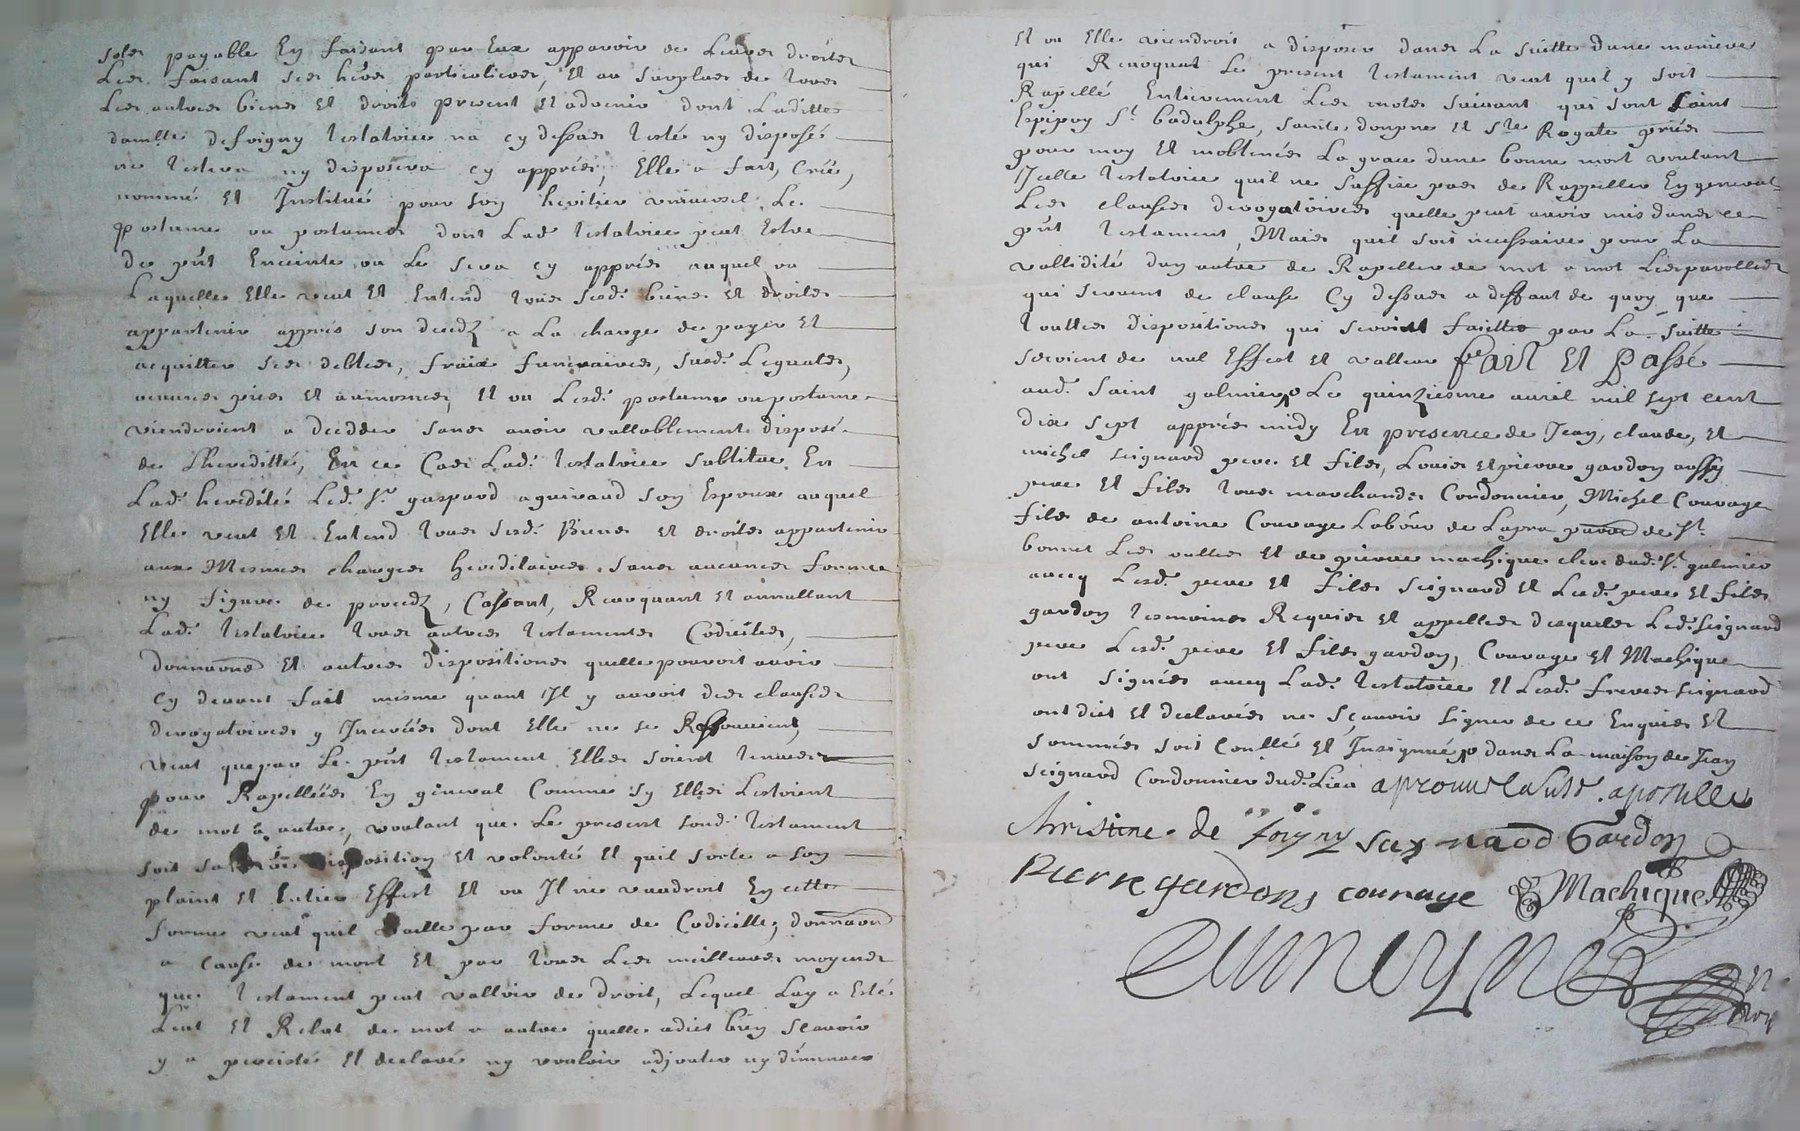 soles payable En faisant par Eux apparoir de Leures droites
Les faisant ses heires particulieres, Et au surplues de toues
Les autres bienes Et droits present Et advenir dont Laditte
damlle de foigny testatrice na cy dessues testé ny disposé
ne testera ny disposera cy apprés, Elle a fait, Créé,
nommé Et Institué pour son heritier universel Le
postume ou postumes dont Lad. testatrice peut Estre
de pnt Enceinte ou Le sera cy apprés auquel ou
Laquelle Elle veut Et Entend toues sesd. bienes Et droites
appartenir apprés son decedz a La charge de payer Et
acquitter ses debtes, fraix funeraires, susd. Leguates,
œuvres pies Et aumosnes, Et ou Lesd. postume ou postumes
viendroient a decedder sanes avoir vallablement disposé
de Lheredité, En ce Cas Lad. testatrice subtitue En
Lad. heredité Led. sr. gaspard aguiraud son Espoux auquel
Elle veut Et Entend toues sesd. Bienes et droites appartenir
aux Mesmes charges hereditaires sanes aucunes forme
ny figure de procedz, Cassant, Revoquant Et annullant
Lad. testatrice toues autres testamentes Codiciles,
donnaones Et autres dispositiones quelle pouroit avoir
cy devant fait mesme quant Il y auroit des clauses
derogatoires y Inserées dont Elle ne se Ressouvient,
veut que par Le pnt testament Elles soient tenues
pour Rapellées En general Comme sy Elles Lestoient
de mot a autre, voulant que Le present soud. testament
soit sa disposition Et volonté Et quil sorte a son
plaint Et Entier Effect Et ou Il ne vaudroit En cette
forme veut quil vaille par forme de Codicille, donnaond
a cause de mort Et par toues Les meilleures moyenes
que testament peut valloir de droit, Lequel Luy a Esté
Leut Et Releut de mot a autre quelle a dict bien scavoir
y a percisté Et declaré ny vouloir adjouter ny diminuer
Et ou Elle viendroit a disposer danes La suitte dune maniere
qui Revoquat Le present testament veut quil y soit
Rapellé Entierement Les motes suivant qui sont saint
Espipoy St. badulphe, sainte doupne Et Ste Rogate priés
pour moy Et mobtenés La grace dune bonne mort voulant
Icelle testatrice quil ne suffise pas de Rappeller En general
Les clauses derogatoires quelle peut avoir mis danes ce
pnt testament, Maies quil soit necessaire pour La
vallidité dun autre de Rapeller de mot a mot Les parolles
qui servent de clause Cy dessues a deffaut de quoy que
touttes dispositiones qui seroint faittes par La suitte
soeient de nul Effect Et valleur fait Et Passé
aud. saint galmier Le quinziesme avril mil sept cent
dix sept apprés midy En presence de Jean, claude, Et
michel seignard pere Et files, Louies Et pierre gardon aussy
pere Et files toues marchandes Cordonnier, Michel Courage
files de antoine Courage Labour de Lapra parod de St.
bonnet Les oulles Et de pierre machique clerc dud. St. galmier
avecq Lesd. pere Et files seignard Et Lesd. pere Et files
gardon tesmoines Requies Et appelles desqueles Led. seignard
pere Lesd. pere Et files gardon, Courage Et Machique
ont signés avecq Lad. testatrice Et Lesd. freres seignard
ont dict Et declarés ne scavoir signer de ce Enquies Et
sommées soit Conllé Et Insignué danes La maison de Jean
seignard Cordonnier dud. Lieu aprouve la susd. apostille
christine de foigny Seignaod Gardon
Pierre gardons courage Machique